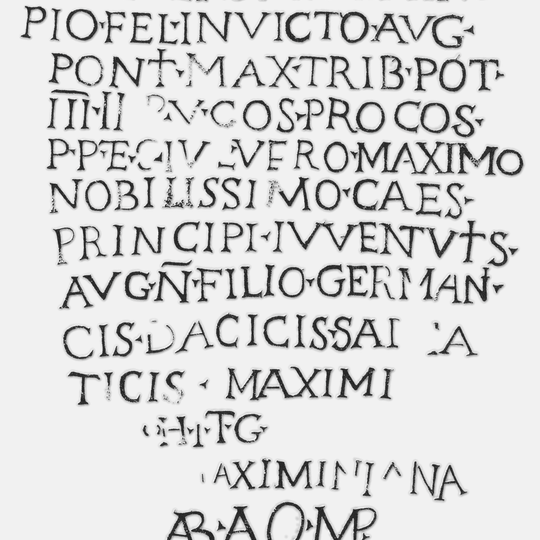 PIO·FELINVICTO·AVG·
PONT·MAX·TRIB·POT·
IIII·II COS·PRO COS·
P·P·ET·C·IVL VERO·MAXIMO
NOBILISSIMO·CAES·
PRINCIPI·IVVENTVTS·
AVGN·FILIO·GERMAN·
CIS·DACICIS·SAR
TICIS · MAXIMI
AXIMINIANA
AB·AQ·MP